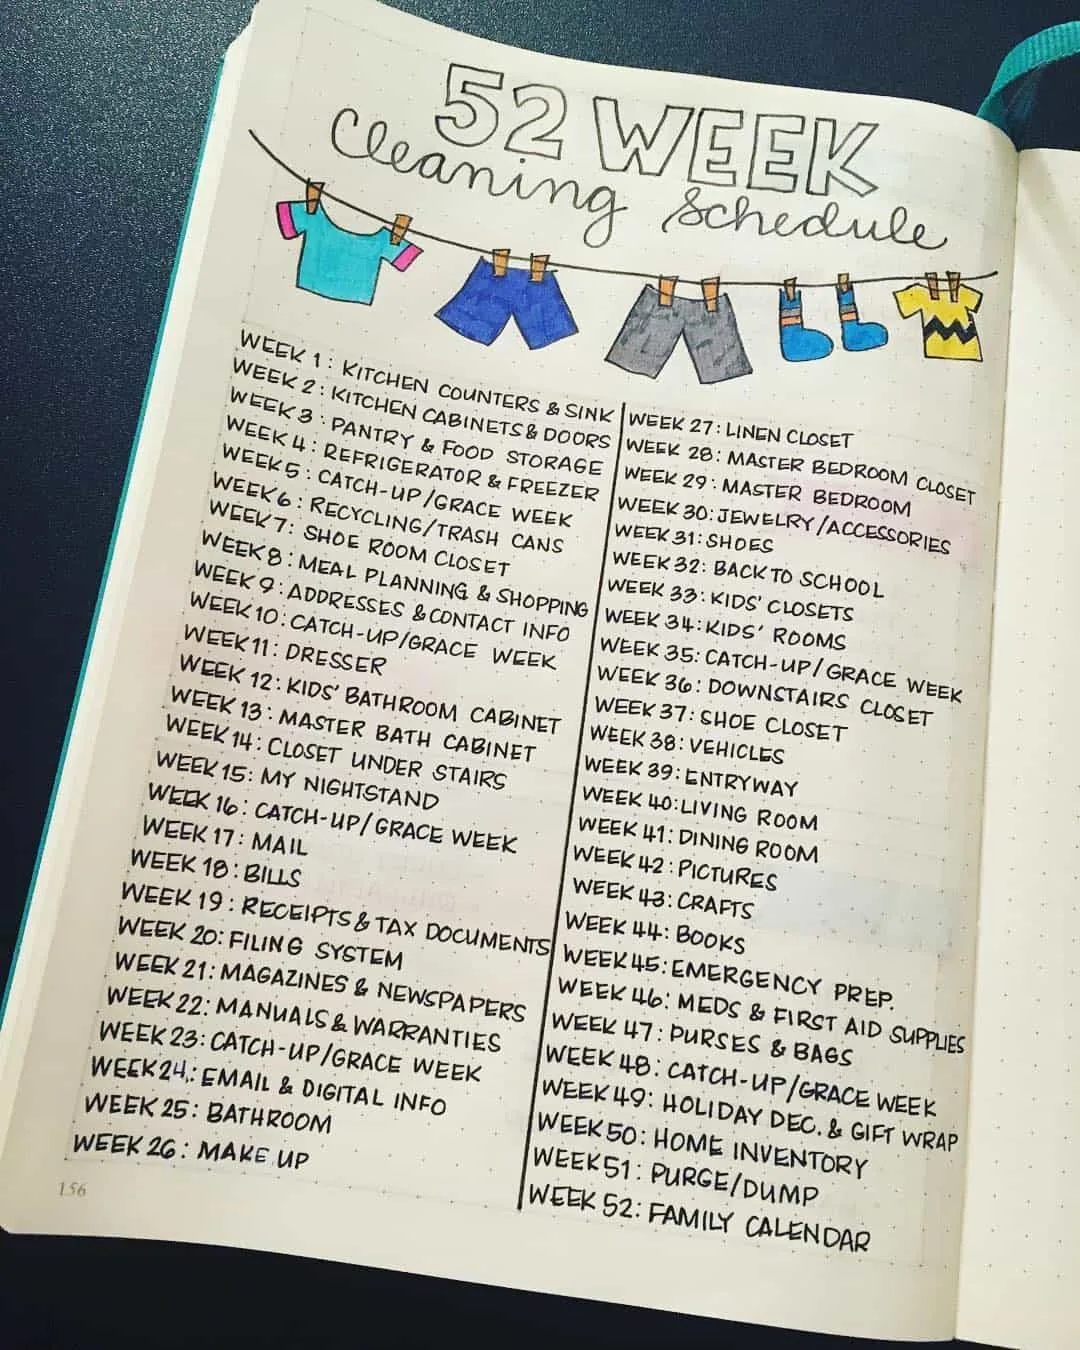 52 WEEK
Cleaning Schedule
WEEK 1: KITCHEN COUNTERS & SINK
WEEK 2: KITCHEN CABINETS & DOORS
WEEK 3: PANTRY & FOOD STORAGE
WEEK 4: REFRIGERATOR & FREEZER
WEEK 5: CATCH-UP/GRACE WEEK
WEEK 6: RECYCLING/TRASH CANS
WEEK 7: SHOE ROOM CLOSET
WEEK 8: MEAL PLANNING & SHOPPING
WEEK 9: ADDRESSES & CONTACT INFO
WEEK 10: CATCH-UP/GRACE WEEK
WEEK 11: DRESSER
WEEK 12: KIDS' BATHROOM CABINET
WEEK 13: MASTER BATH CABINET
WEEK 14: CLOSET UNDER STAIRS
WEEK 15: MY NIGHTSTAND
WEEK 16: CATCH-UP/GRACE WEEK
WEEK 17: MAIL
WEEK 18: BILLS
WEEK 19: RECEIPTS & TAX DOCUMENTS
WEEK 20: FILING SYSTEM
WEEK 21: MAGAZINES & NEWSPAPERS
WEEK 22: MANUALS & WARRANTIES
WEEK 23: CATCH-UP/GRACE WEEK
WEEK 24: EMAIL & DIGITAL INFO
WEEK 25: BATHROOM
WEEK 26: MAKE UP
WEEK 27: LINEN CLOSET
WEEK 28: MASTER BEDROOM CLOSET
WEEK 29: MASTER BEDROOM
WEEK 30: JEWELRY/ACCESSORIES
WEEK 31: SHOES
WEEK 32: BACK TO SCHOOL
WEEK 33: KIDS' CLOSETS
WEEK 34: KIDS' ROOMS
WEEK 35: CATCH-UP/GRACE WEEK
WEEK 36: DOWNSTAIRS CLOSET
WEEK 37: SHOE CLOSET
WEEK 38: VEHICLES
WEEK 39: ENTRYWAY
WEEK 40: LIVING ROOM
WEEK 41: DINING ROOM
WEEK 42: PICTURES
WEEK 43: CRAFTS
WEEK 44: BOOKS
WEEK 45: EMERGENCY PREP.
WEEK 46: MEDS & FIRST AID SUPPLIES
WEEK 47: PURSES & BAGS
WEEK 48: CATCH-UP/GRACE WEEK
WEEK 49: HOLIDAY DEC. & GIFT WRAP
WEEK 50: HOME INVENTORY
WEEK 51: PURGE/DUMP
WEEK 52: FAMILY CALENDAR
156